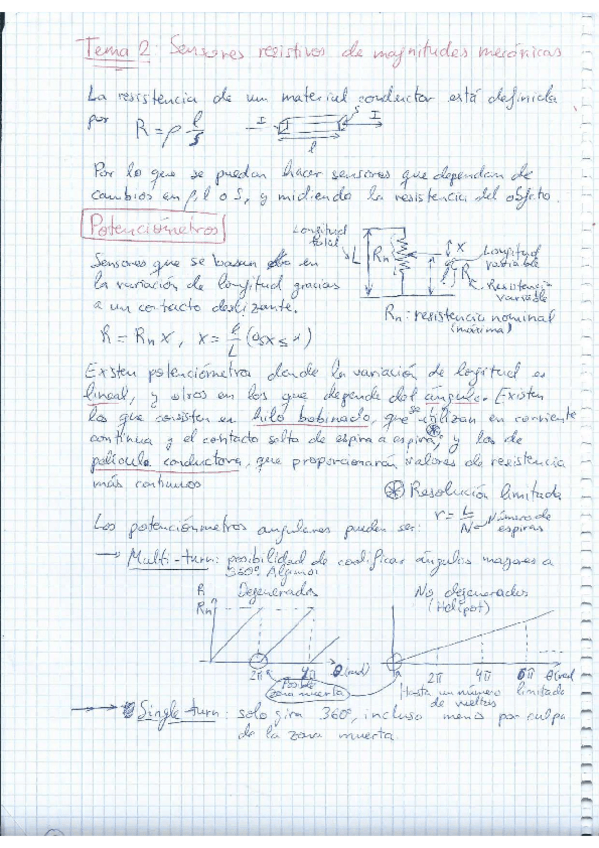 Tema 2: Sensores resistivos de magnitudes mecánicas
La resistencia de un material conductor está definida
por R = ρ l/s
I
s
I
l
Por lo que se puedan hacer sensores que dependan de
cambios en ρ, l o S, y midiendo la resistencia del objeto.
Potenciómetros
Longitud total
L
Rn
x
Longitud variable
R
Resistencia variable
Rn: resistencia nominal
(máxima)
Sensores que se basan en
la variación de longitud gracias
a un contacto deslizante.
R = Rn x, x = l/L (0≤x≤1)
Existen potenciómetros donde la variación de logitud es
lineal, y otros en los que depende del ángulo. Existen
los que consisten en hilo bobinado, que se utilizan en corriente
continua y el contacto salta de espira a espira, y los de
película conductora, que proporcionarán valores de resistencia
más continuos
⊛ Resolución limitada
r = L/N → Número de espiras
Los potenciómetros angulares pueden ser:
→ Multi-turn: posibilidad de codificar ángulos mayores a
360º. Algunos:
R
Degenerados
No degenerados
(Helipot)
Rn
2π
4π
θ(rad)
2π
4π
6π
θ(rad)
Posible
zona muerta
Hasta un número limitado
de vueltas
→ Single turn: solo gira 360º, incluso menos por culpa
de la zona muerta.